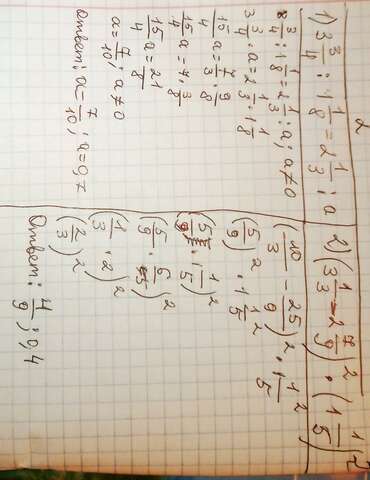 1) 3 3/4 : 1 1/8 = 2 1/3 : a
3 3/4 : 1 1/8 = 2 1/3 : a; a ≠ 0
3 3/4 a = 2 1/3 : 1 1/8
15/4 a = 7/3 · 9/8
15/4 a = 7 · 3/8
15/4 a = 21/8
a = 7/10; a ≠ 0
Ответ: a = 7/10; a = 0,7
2) (3 1/3 - 2 7/9)² · (1 1/5)²
(10/3 - 25/9)² · 1 1/5²
(5/9)² · 1 1/5²
(5/9 · 1 1/5)²
(5/9 · 6/5)²
(1/3 · 2)²
(2/3)²
Ответ: 4/9; 0,4